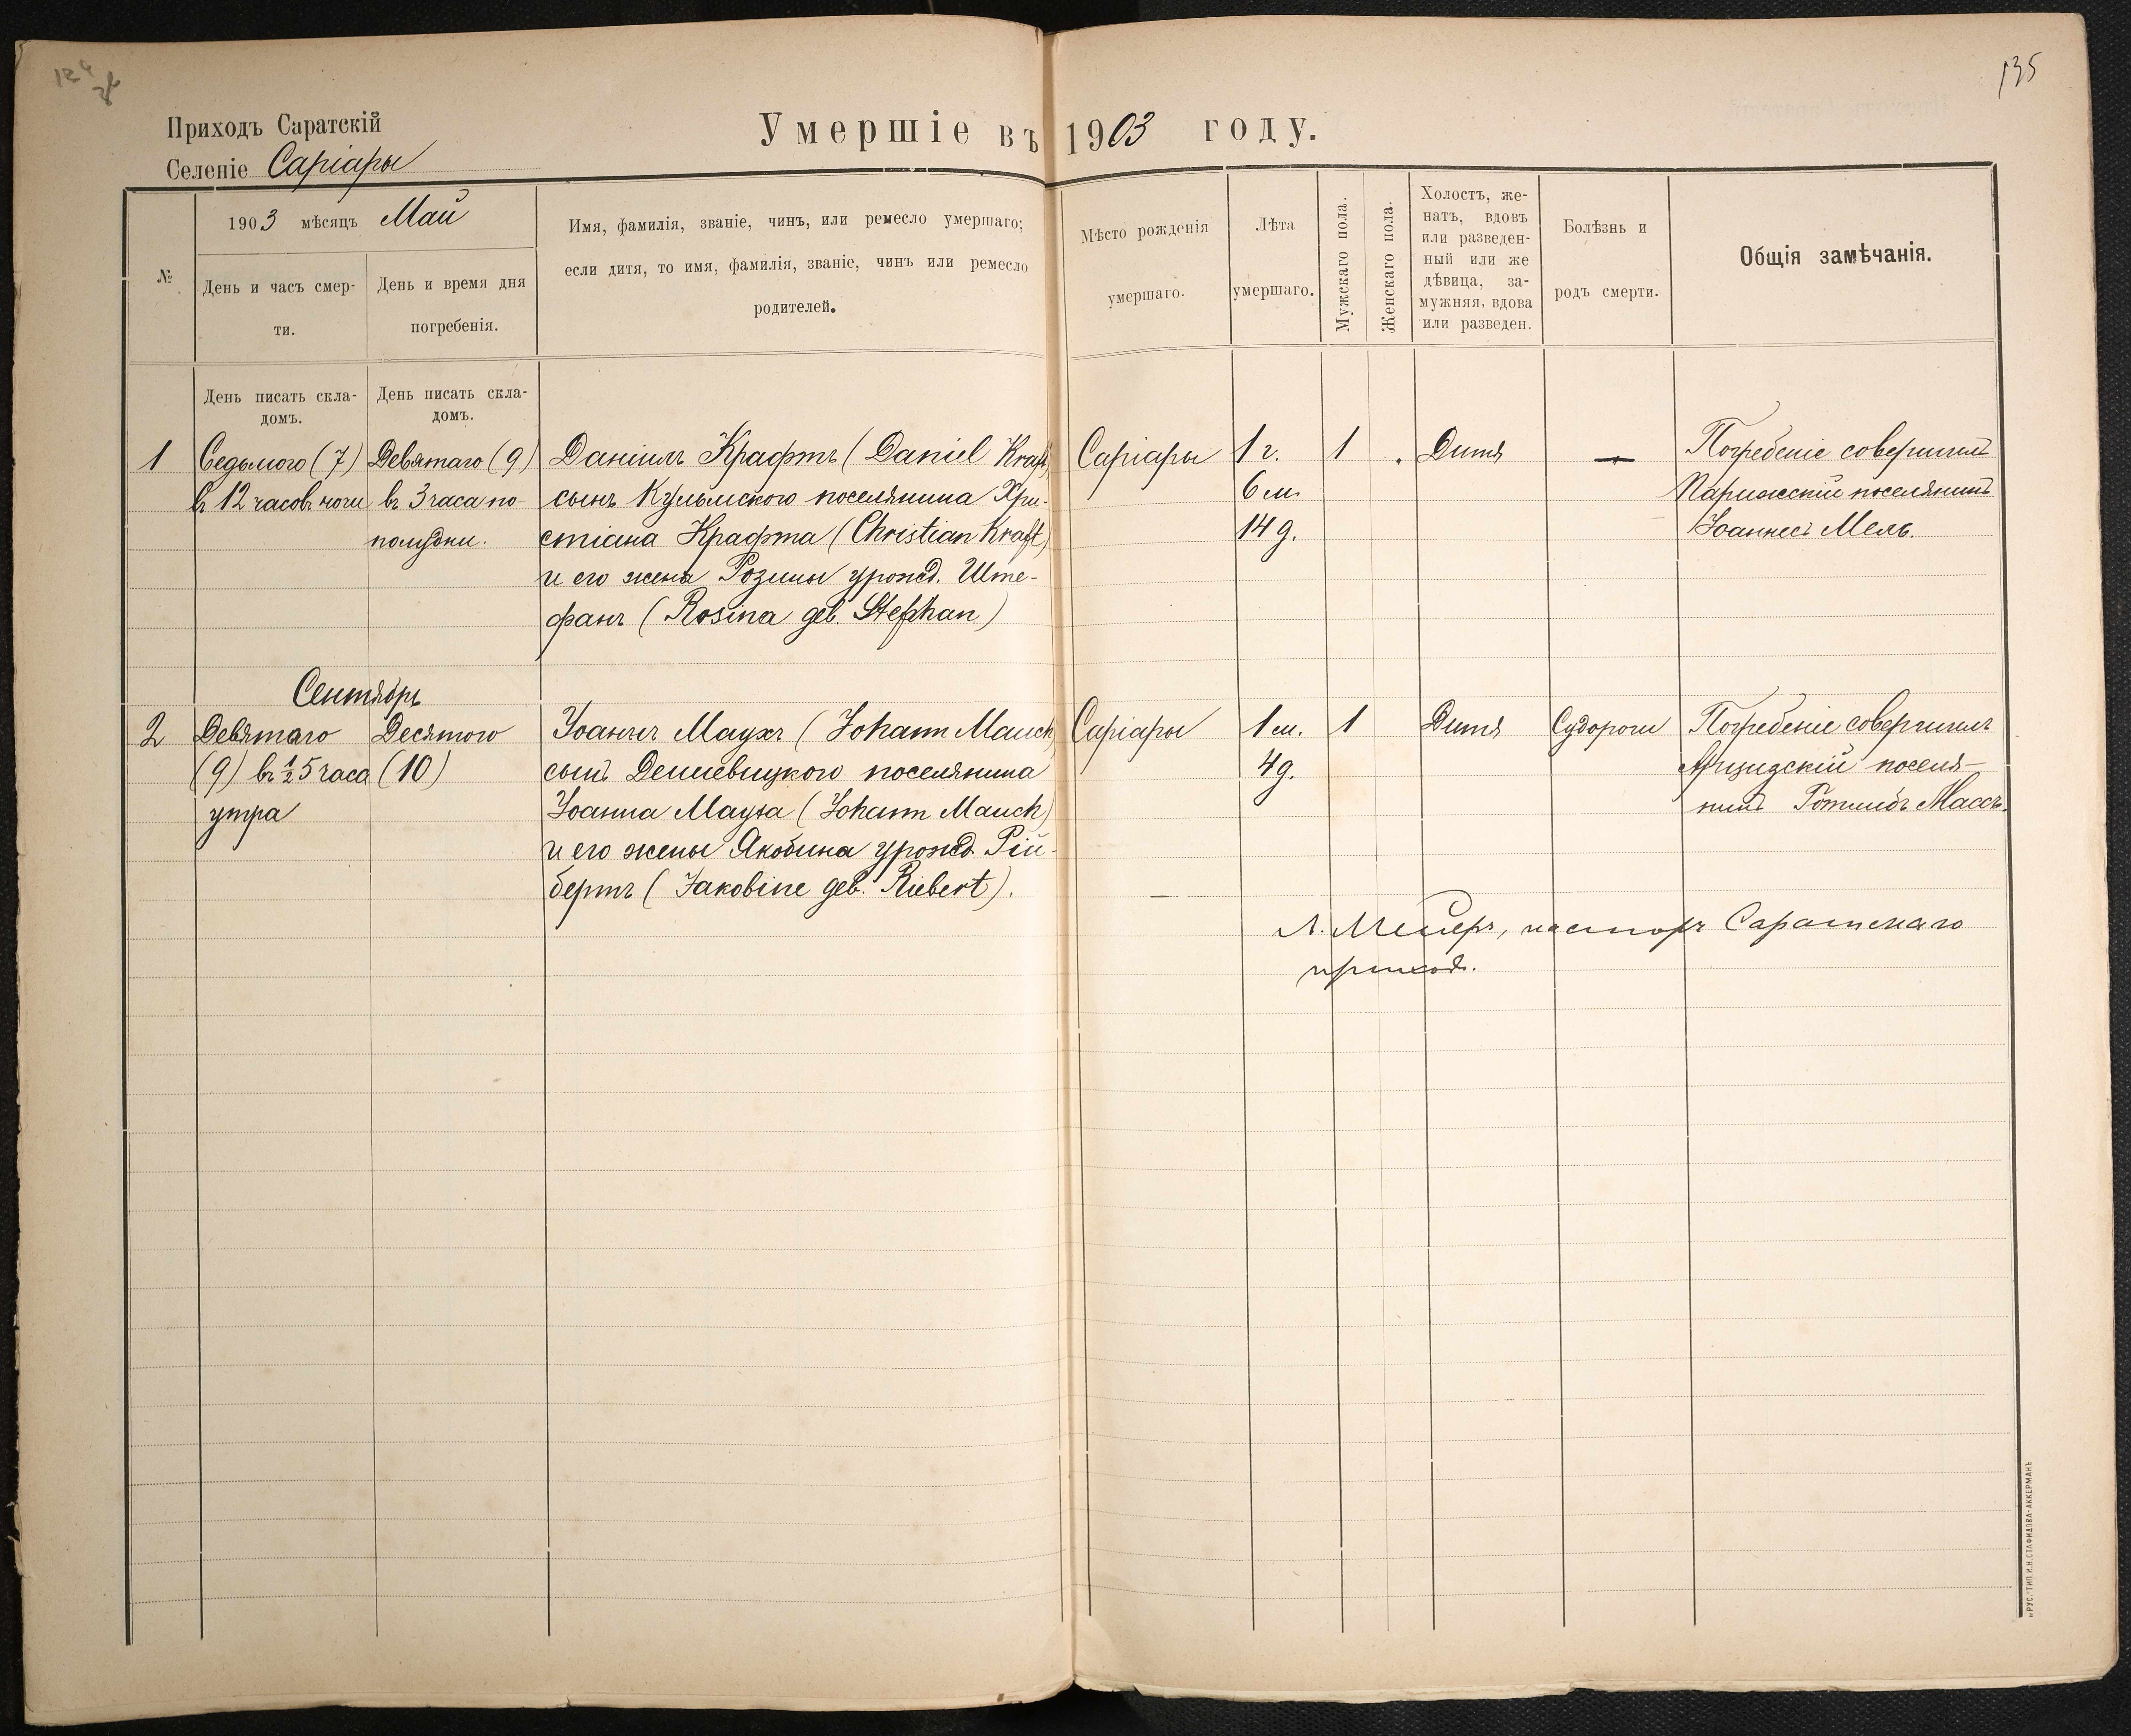 135
Приходъ Саратскій
Селеніе Саріары
Умершіе въ 1903 году.
№
1903 мѣсяцъ Май
День и часъ смер-
ти.
День и время дня
погребенія.
Имя, фамилія, званіе, чинъ, или ремесло умершаго;
если дитя, то имя, фамилія, званіе, чинъ или ремесло
родителей.
Мѣсто рожденія
умершаго.
Лѣта
умершаго.
Мужскаго пола.
Женскаго пола.
Холостъ, же-
натъ, вдовъ
или разведен-
ный или же
дѣвица, за-
мужняя, вдова
или разведен.
Болѣзнь и
родъ смерти.
Общія замѣчанія.
День писать скла-
домъ.
День писать скла-
домъ.
1
Седьмого (7)
въ 12 часовъ ночи
Девятаго (9)
въ 3 часа по-
полудни.
Даніилъ Крафтъ (Daniel Kraft)
сынъ Кульмского поселянина Хри-
стіана Крафта (Christian Kraft)
и его жена Розины урожд. Ште-
фанъ (Rosina geb. Stephan)
Саріары
1 г.
6 м.
14 д.
1
Дитя
—
Погребеніе совершилъ
Парижскій поселянинъ
Іоаннесъ Мель.
Сентябрь
2
Девятаго
(9) въ ½5 часа
утра
Десятого
(10)
Іоаннъ Маухъ (Johann Mauch)
сынъ Денневицкого поселянина
Іоанна Мауха (Johann Mauch)
и его жены Якобина урожд. Рій-
бертъ (Jakobine geb. Riebert).
Саріары
1 м.
4 д.
1
Дитя
Судороги
Погребеніе совершилъ
Арцизскій поселя-
нинъ Готлибъ Массъ.
Л. Мейеръ, пасторъ Саратскаго
прихода.
РУС. ТИП. И.Н. СТАФИДОВА-АККЕРМАНЪ